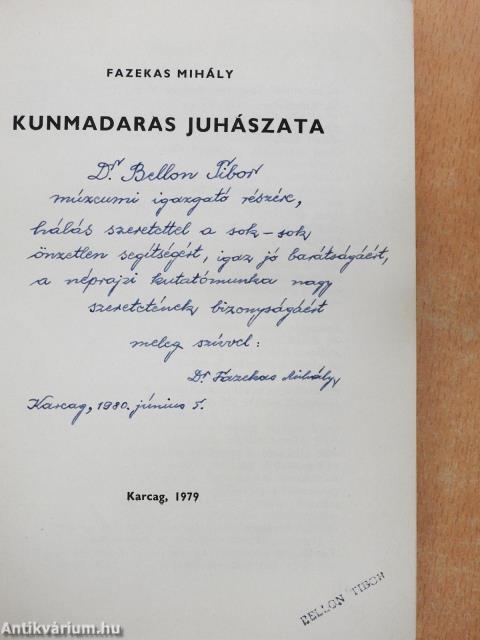 FAZEKAS MIHÁLY
KUNMADARAS JUHÁSZATA
Dr Bellon Tibor
múzeumi igazgató részére,
hálás szeretettel a sok-sok
önzetlen segítségért, igaz jó barátságáért,
a néprajzi kutatómunka nagy
szeretetének bizonyságáért
meleg szívvel:
Dr Fazekas Mihály
Karcag, 1980. június 5.
Karcag, 1979
BELLON TIBOR
Antikvárium.hu